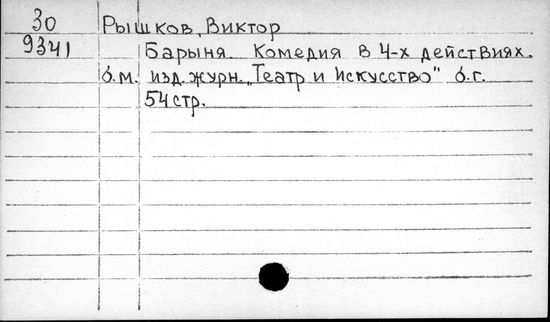 30 Рышков, Виктор
9341 Барыня. Комедия в 4-х действиях.
б.м. изд. журн. „Театр и Искусство" б.г.
54 стр.